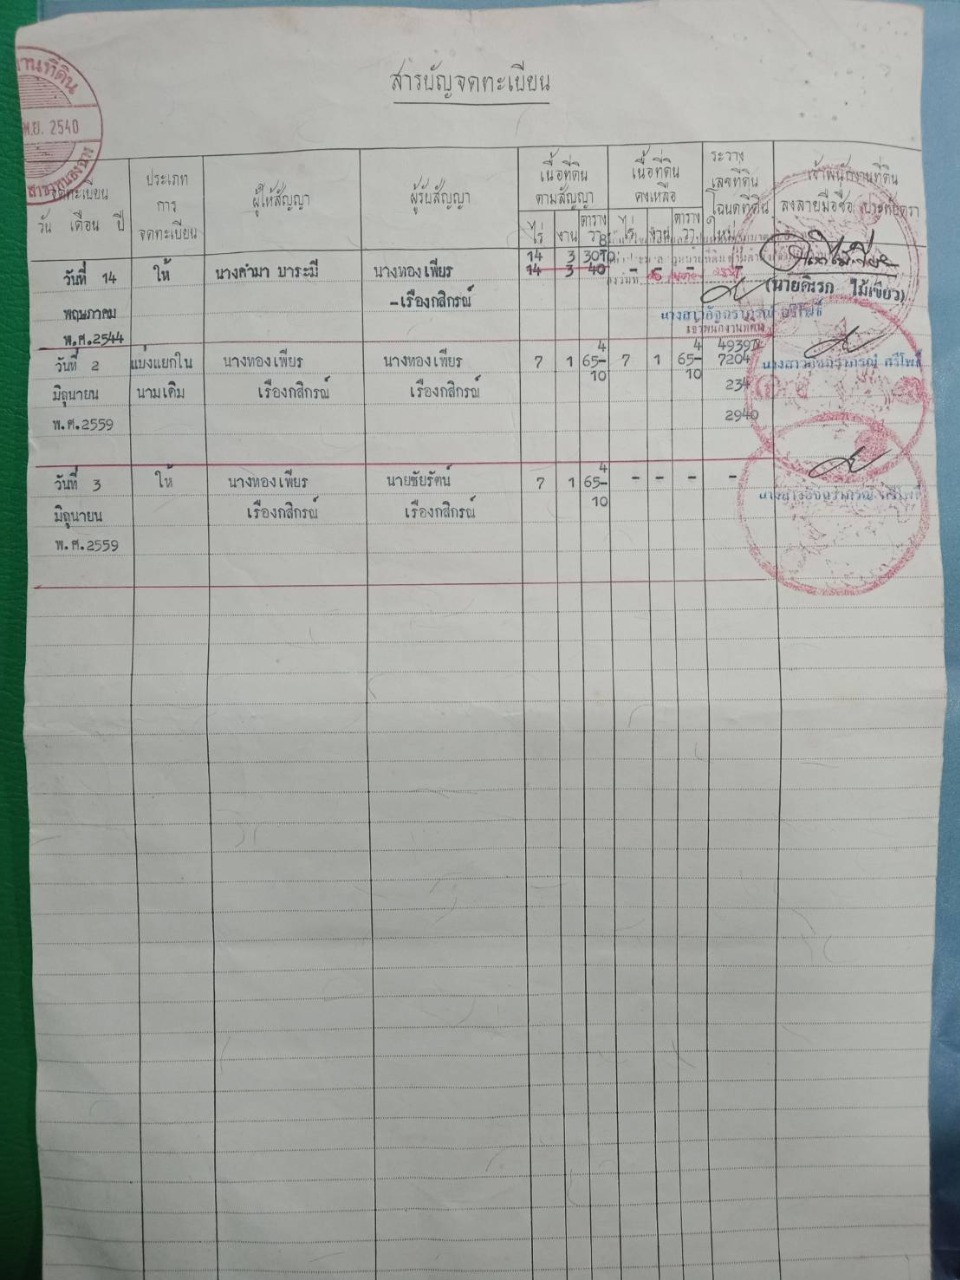 สารบัญจดทะเบียน
านที่ดิน
พ.ย. 2540
จดทะเบียน
วัน เดือน ปี
ประเภท
การ
จดทะเบียน
ผู้ให้สัญญา
ผู้รับสัญญา
เนื้อที่ดิน
ตามสัญญา
ไร่ งาน ตาราง
วา
เนื้อที่ดิน
คงเหลือ
ไร่ งาน ตาราง
วา
ระวาง
เลขที่ดิน
โฉนดที่ดิน
ใหม่
เจ้าพนักงานที่ดิน
ลงลายมือชื่อ ประทับตรา
14 3 30
วันที่ 14 ให้ นางคำมา บาระมี นางทองเพียร 14 3 40 - - - -
-เรืองกสิกรณ์ (นายดิเรก ไม้เขียว)
พฤษภาคม
พ.ศ.2544
เจ้าพนักงานที่ดิน
วันที่ 2 แบ่งแยกใน นางทองเพียร นางทองเพียร 7 1 65 4/10 7 1 65 4/10 7204
มิถุนายน นามเดิม เรืองกสิกรณ์ เรืองกสิกรณ์ 234
พ.ศ.2559 2940
วันที่ 3 ให้ นางทองเพียร นายชัยรัตน์ 7 1 65 4/10 - - - -
มิถุนายน เรืองกสิกรณ์ เรืองกสิกรณ์
พ.ศ.2559